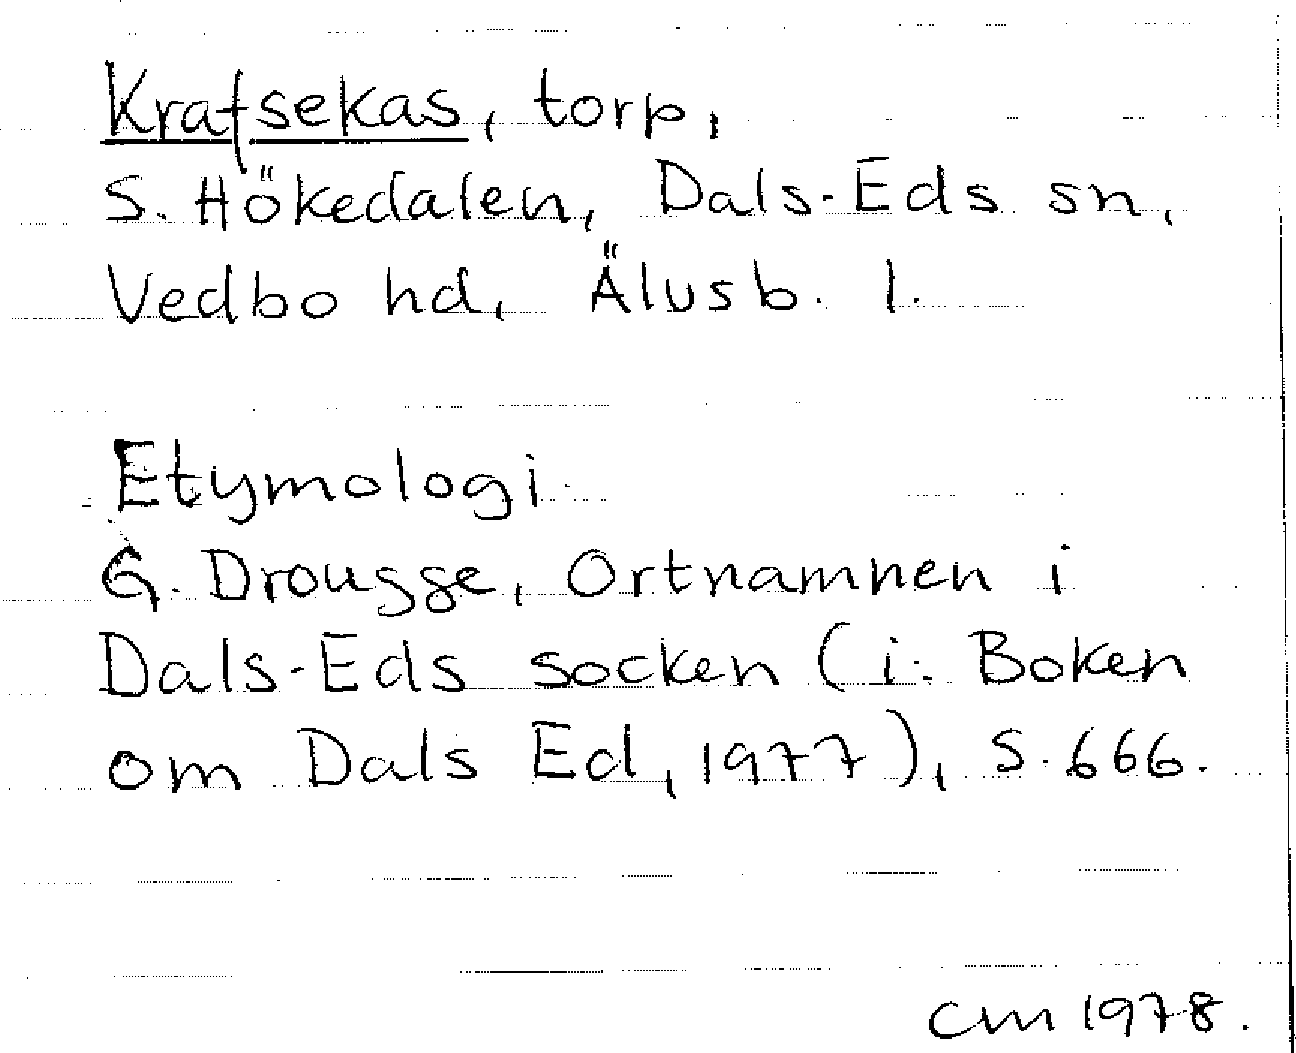 Krafsekas, torp,
S. Hökedalen, Dals-Eds sn,
Vedbo hd, Älvsb. l.
Etymologi
G. Drougge, Ortnamnen i
Dals-Eds socken (i: Boken
om Dals Ed, 1977), s. 666.
CM 1978.